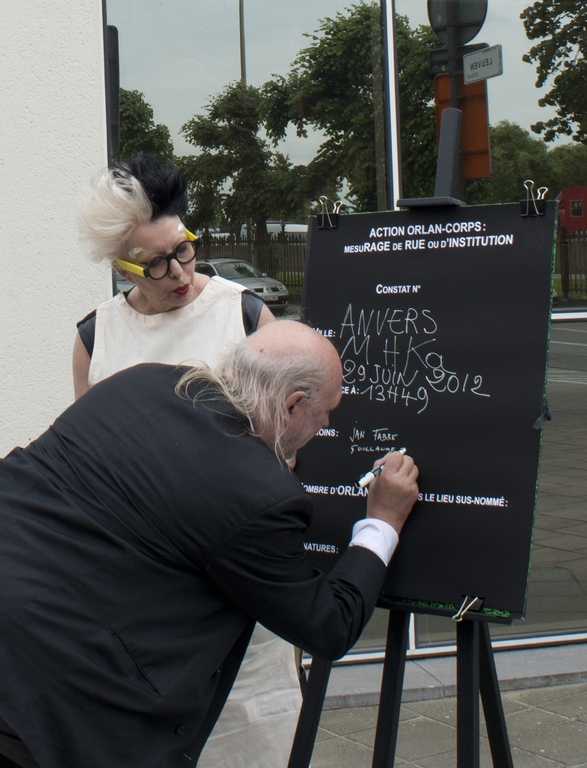 LEUVEN
ACTION ORLAN-CORPS:
MESURAGE DE RUE OU D'INSTITUTION
CONSTAT N°
VILLE: ANVERS
M HKa
29 JUIN 2012
CE À: 13H49
OINS: JAN FABRE
GUILLAUME
OMBRE D'ORLAN S LE LIEU SUS-NOMMÉ:
NATURES: